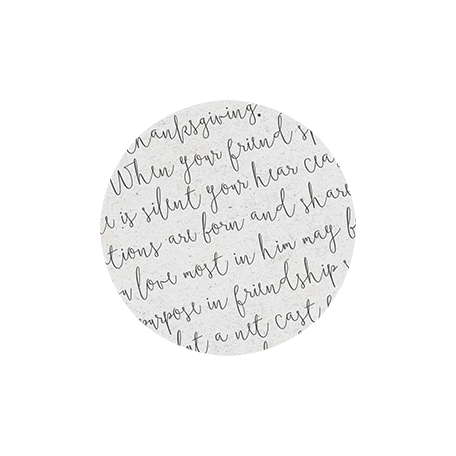 thanksgiving.
When your friend sp
e is silent your hear cea
tions are forn and share
u love most in him may b
urpose in friendship
but a net cast